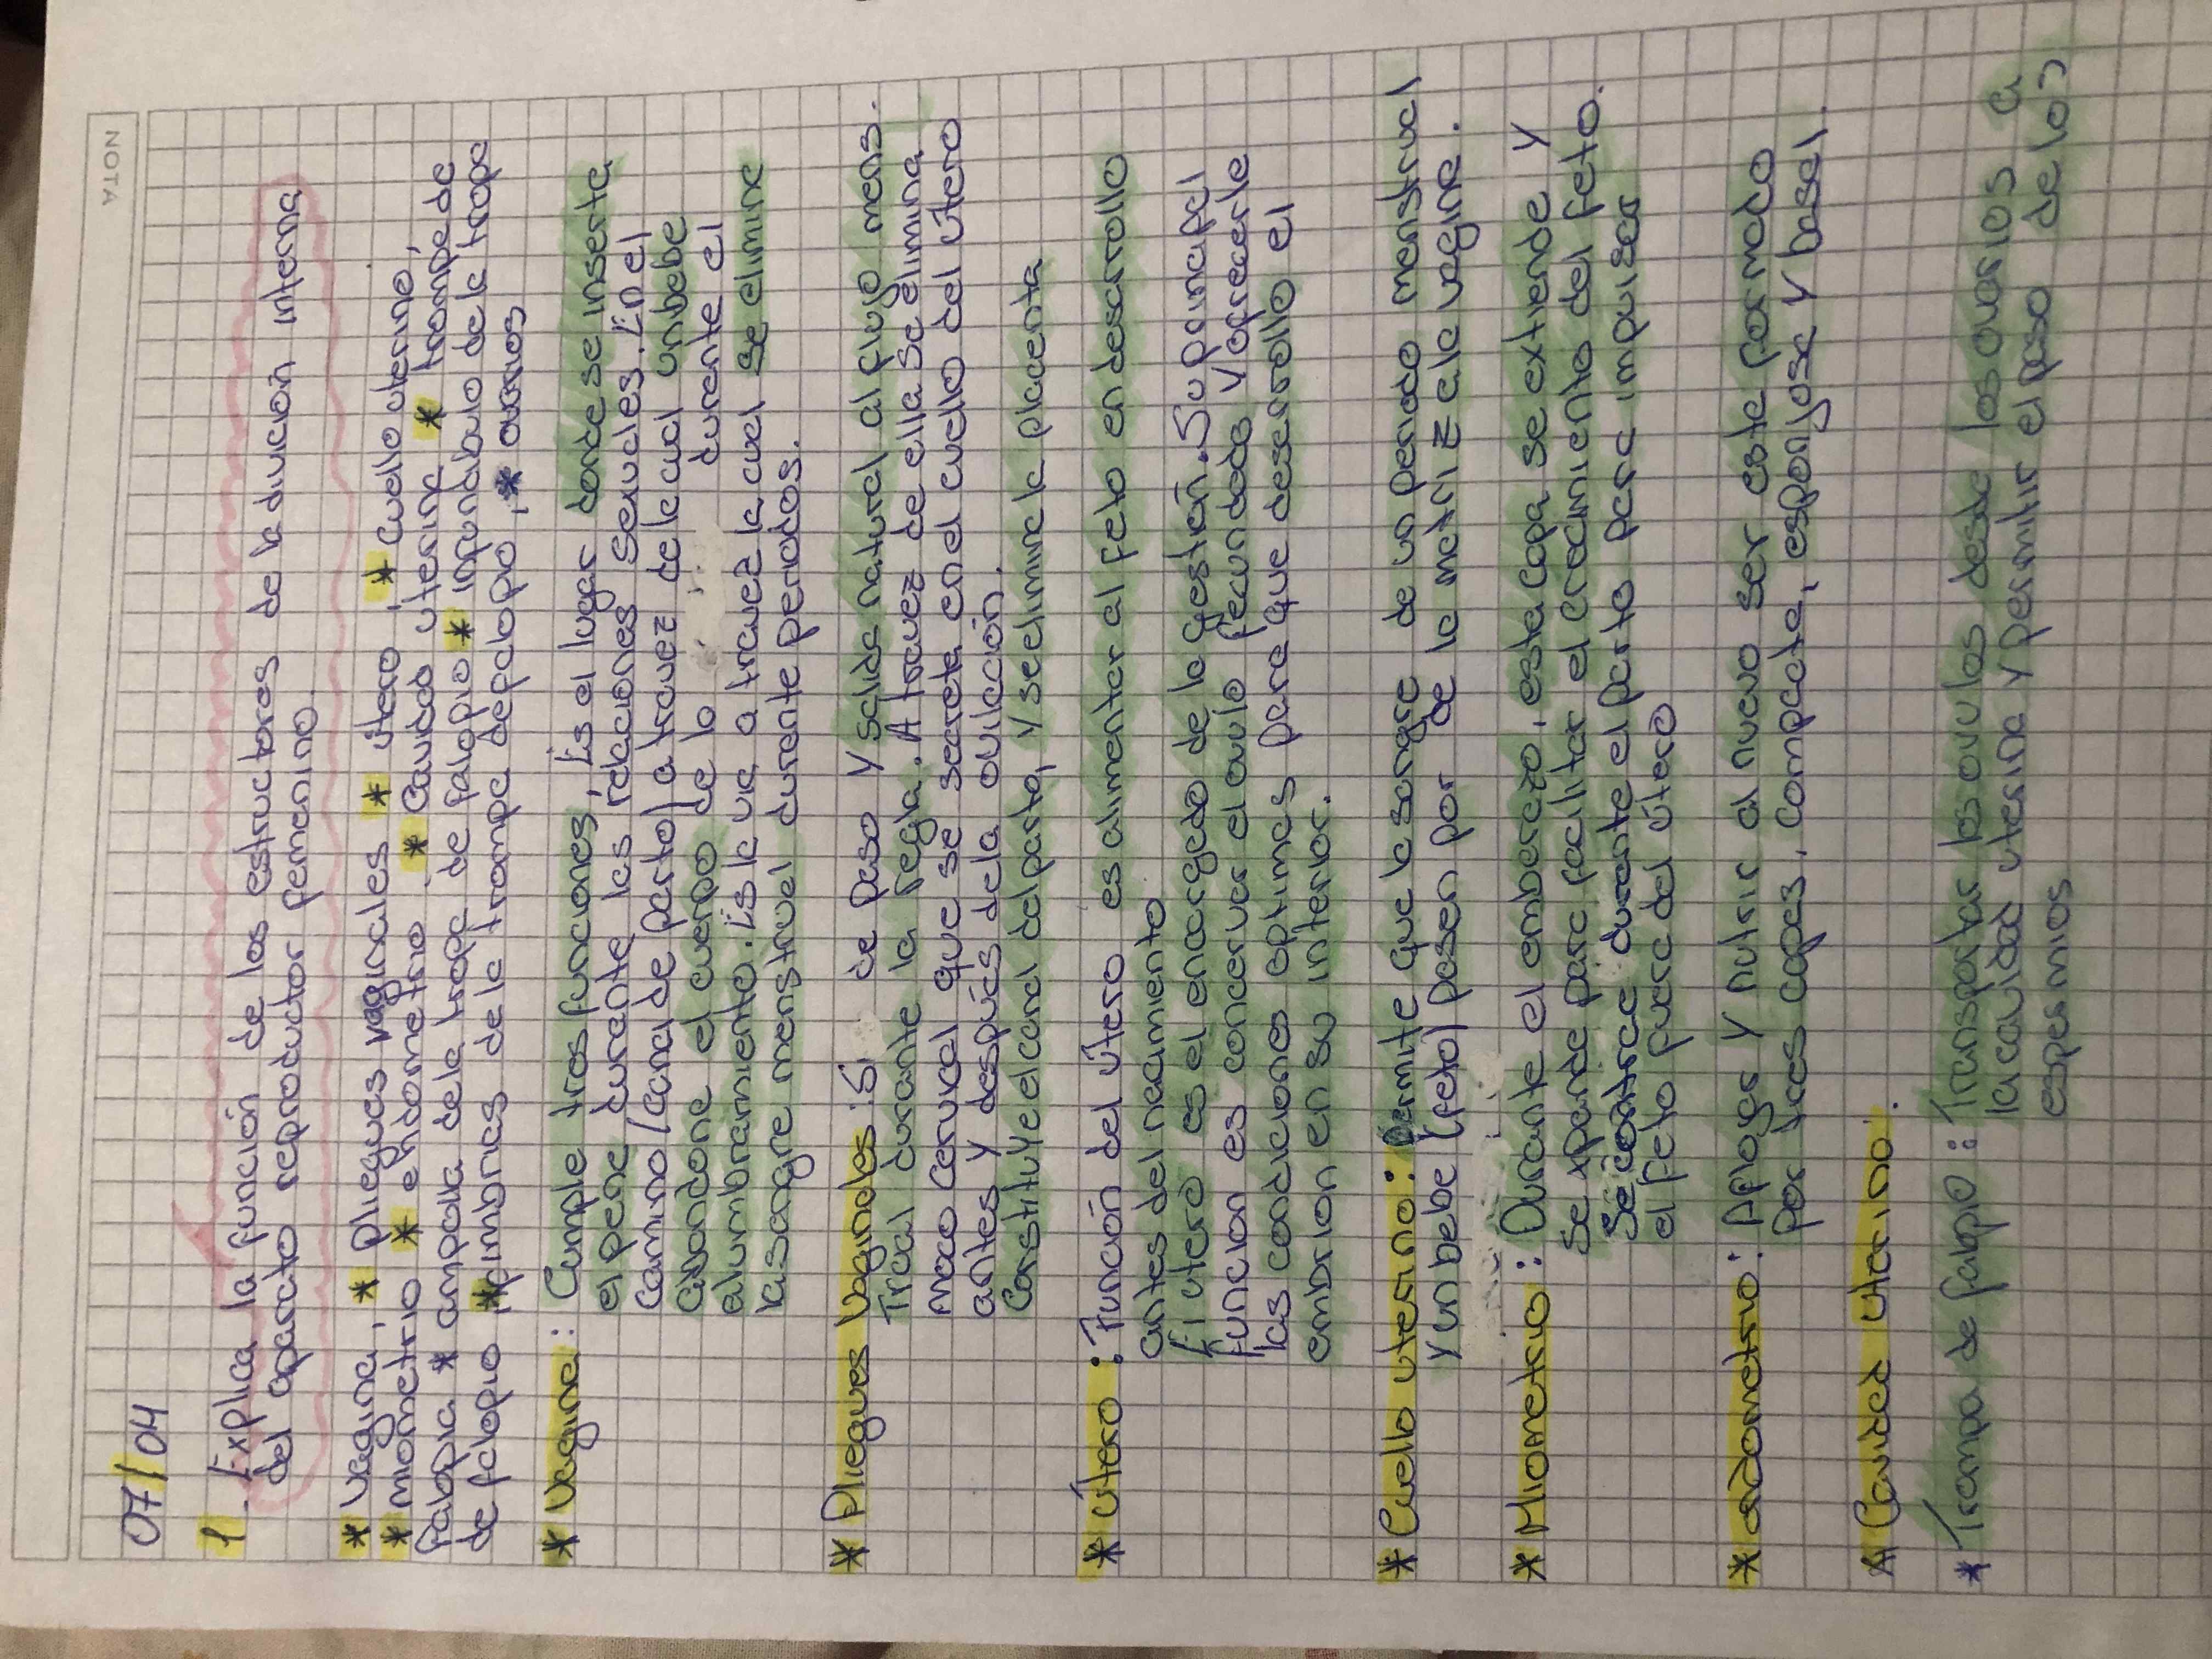 NOTA
07/04
1. Explica la función de los estructuras de la divición interna
del aparato reproductor femenino.
* vagina, * pliegues vaginales * útero, * cuello uterino,
* miometrio * endometrio * Cavidad uterina * trompa de
falopia * ampolla dela tropa de falopio * infundabulo de la tropa
de falopio * fimbrias de la trompa de falopio, * ovarios
* vagina: Cumple tres funciones, Es el lugar donde se inserta
el pene durante las relaciones sexuales. En el
camino (canal de parto) a travez de la cual un bebe
abandona el cuerpo de la durante el
alumbramiento. Es la via a travez la cual se elimina
la sangre menstrual durante periodos.
* Pliegues Vaginales: Si de paso y salida natural al flujo mens-
trual durante la regla. A travez de ella se elimina
moco cervical que se secreta en el cuello del útero
antes y después dela ovulación.
Constituye el canal del parto, y se elimina la placenta
* Útero: Función del útero es alimentar al feto en desarrollo
antes del nacimiento
El utero es el encargado de la gestión. Su principal
funcion es concervar el ovulo fecundado y ofrecerle
las condiciones optimas para que desarrollo el
embrion en su interior.
* Cuello uterino: Permite que la sangre de un periodo menstrual
y un bebe (feto) pasen por de la matriz a la vagina.
* Miometrio: Durante el embarazo, esta capa se extiende y
se xpande para facilitar el crecimiento del feto.
Se contrae durante el parto para impulsar
el feto fuera del útero
* endometrio: Aployar y nutrir al nuevo ser este formado
por tres capas, compacta, esponjosa y basal.
* Cavidad uterina.
* Trompa de falopio: Transportar los ovulos desde los ovarios a
la cavidad uterina y permitir el paso de los
espermios